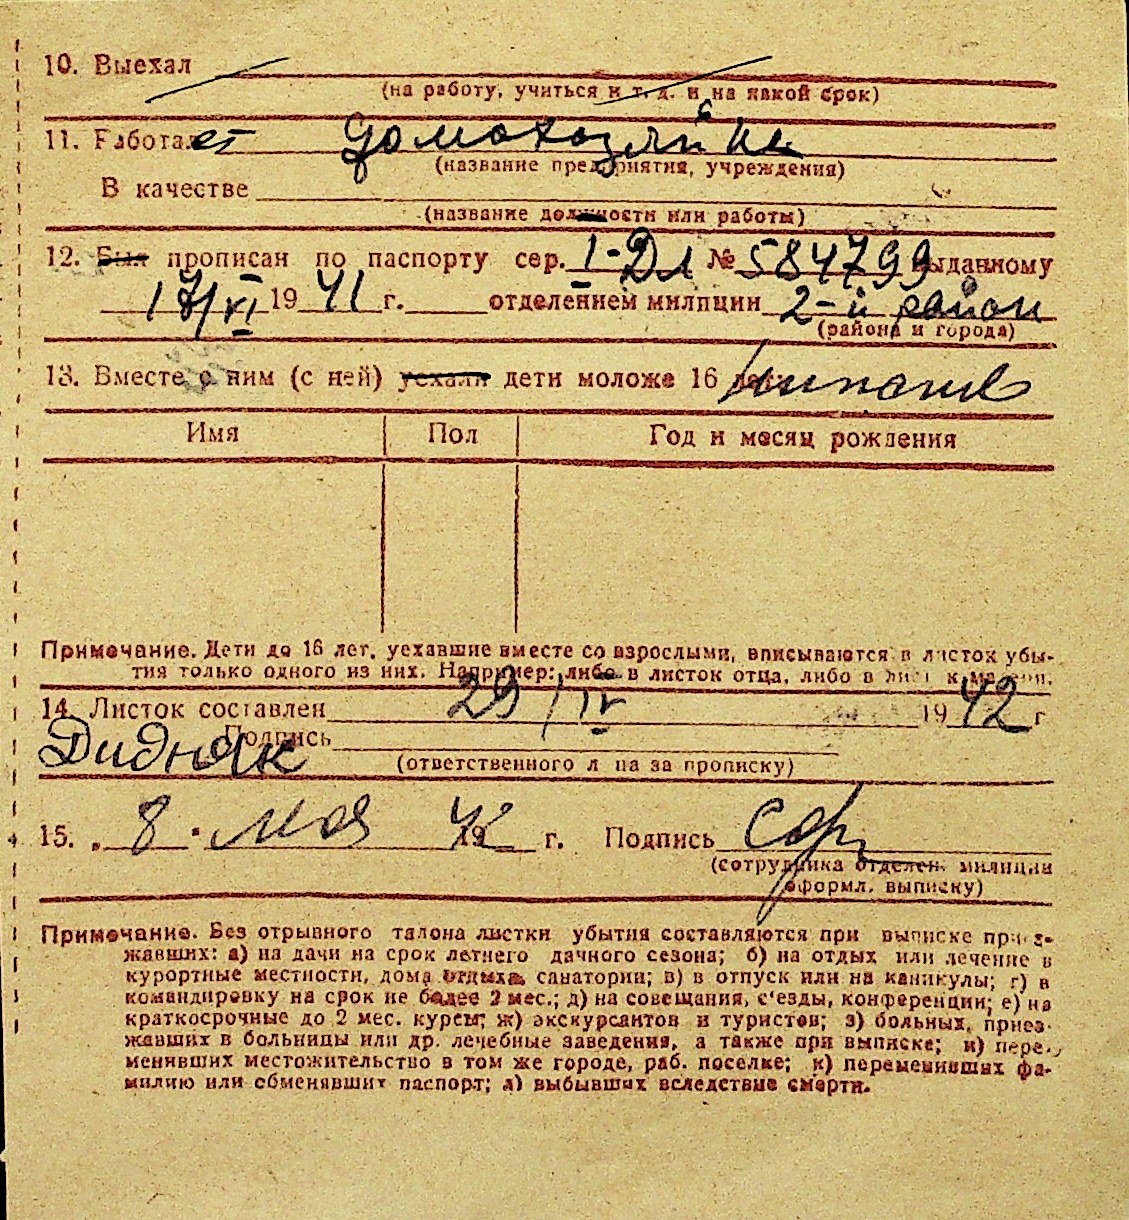 10. Выехал
(на работу, учиться и т. д. и на какой срок)
11. Работает домохозяйка
(название предприятия, учреждения)
В качестве
(название должности или работы)
12. Был прописан по паспорту сер. I-Дл № 584799 выданному
17/VI 1941 г. отделением милиции 2-й район
(района и города)
13. Вместе с ним (с ней) уехали дети моложе 16 лет:
Имя Пол Год и месяц рождения
Примечание. Дети до 16 лет, уехавшие вместе со взрослыми, вписываются в листок убы-
тия только одного из них. Например: либо в листок отца, либо в лист к матери.
14. Листок составлен 29/IV 1942 г
Подпись Дидняк
(ответственного л ца за прописку)
15. „ 8 " мая 42 г. Подпись
(сотрудника отделен. милиции
оформл. выписку)
Примечание. Без отрывного талона листки убытия составляются при выписке приез-
жавших: а) на дачи на срок летнего дачного сезона; б) на отдых или лечение в
курортные местности, дома отдыха, санатории; в) в отпуск или на каникулы; г) в
командировку на срок не более 2 мес.; д) на совещания, с'езды, конференции; е) на
краткосрочные до 2 мес. курсы; ж) экскурсантов и туристов; з) больных, приез-
жавших в больницы или др. лечебные заведения, а также при выписке; и) пере-
менивших местожительство в том же городе, раб. поселке; к) переменивших фа-
милию или обменявших паспорт; л) выбывших вследствие смерти.